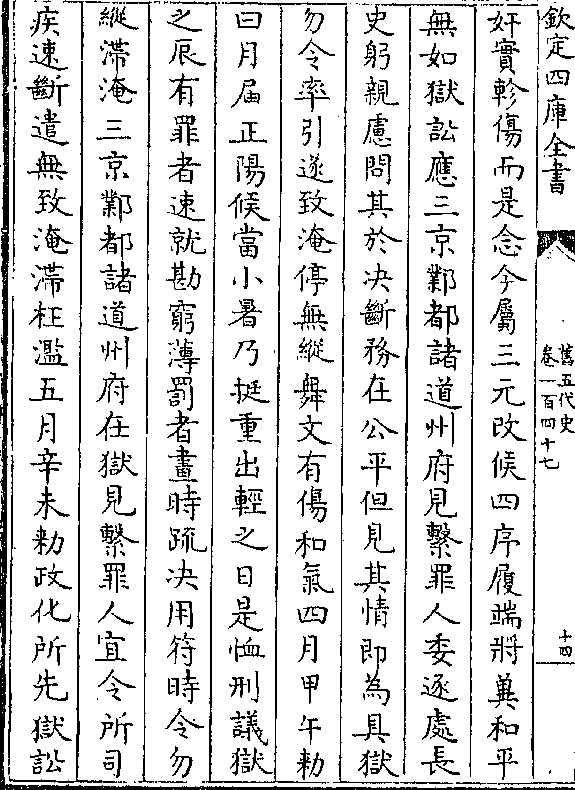 欽定四庫全書
舊五代史
卷一百四十七
十四
奸實軫傷而是念今屬三元改候四序履端將兾和平
無如獄訟應三京鄴都諸道州府見繫罪人委逐處長
史躬親慮問其於决斷務在公平但見其情即為具獄
勿令率引遂致淹停無縱舞文有傷和氣四月甲午勅
曰月屆正陽候當小暑乃挺重出輕之日是恤刑議獄
之辰有罪者速就勘窮薄罰者畫時疏决用符時令勿
縱滯淹三京鄴都諸道州府在獄見繫罪人宜令所司
疾速斷遣無致淹滯枉濫五月辛未勅政化所先獄訟